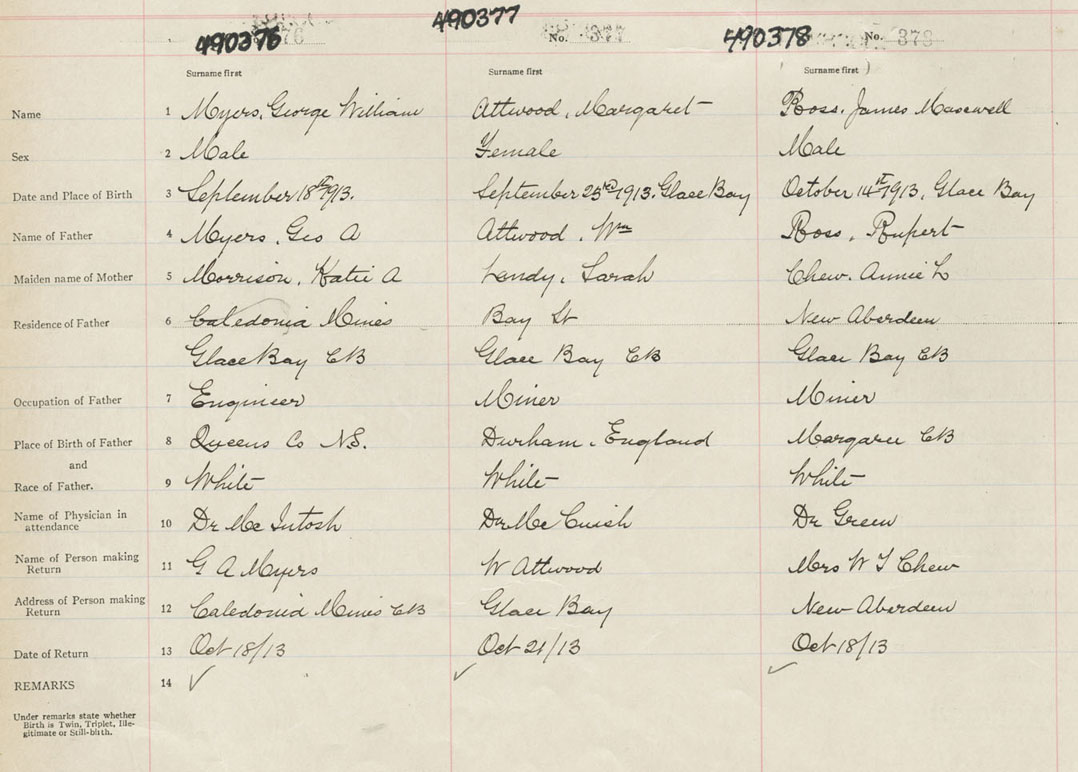 490376 490377 490378
76 No. 377 No. 378
Surname first Surname first Surname first )
Name 1 Myers, George William Attwood, Margaret Ross, James Maxwell
Sex 2 Male Female Male
Date and Place of Birth 3 September 18th 1913. September 23rd 1913. Glace Bay October 14th 1913, Glace Bay
Name of Father 4 Myers, Geo A Attwood, Wm Ross, Rupert
Maiden name of Mother 5 Morrison, Katie A Landy, Sarah Chew. Annie L
Residence of Father 6 Caledonia Mines Bay St New Aberdeen
Glace Bay CB Glace Bay CB Glace Bay CB
Occupation of Father 7 Engineer Miner Miner
Place of Birth of Father 8 Queens Co N.S. Durham, England Margaree CB
and
Race of Father. 9 White White White
Name of Physician in
attendance 10 Dr Mc Intosh Dr Mc Cuish Dr Green
Name of Person making
Return 11 G A Myers W Attwood Mrs W T Chew
Address of Person making
Return 12 Caledonia Mines CB Glace Bay New Aberdeen
Date of Return 13 Oct 18/13 Oct 21/13 Oct 18/13
REMARKS 14 ✓ ✓ ✓
Under remarks state whether
Birth is Twin, Triplet, Ille-
gitimate or Still-birth.